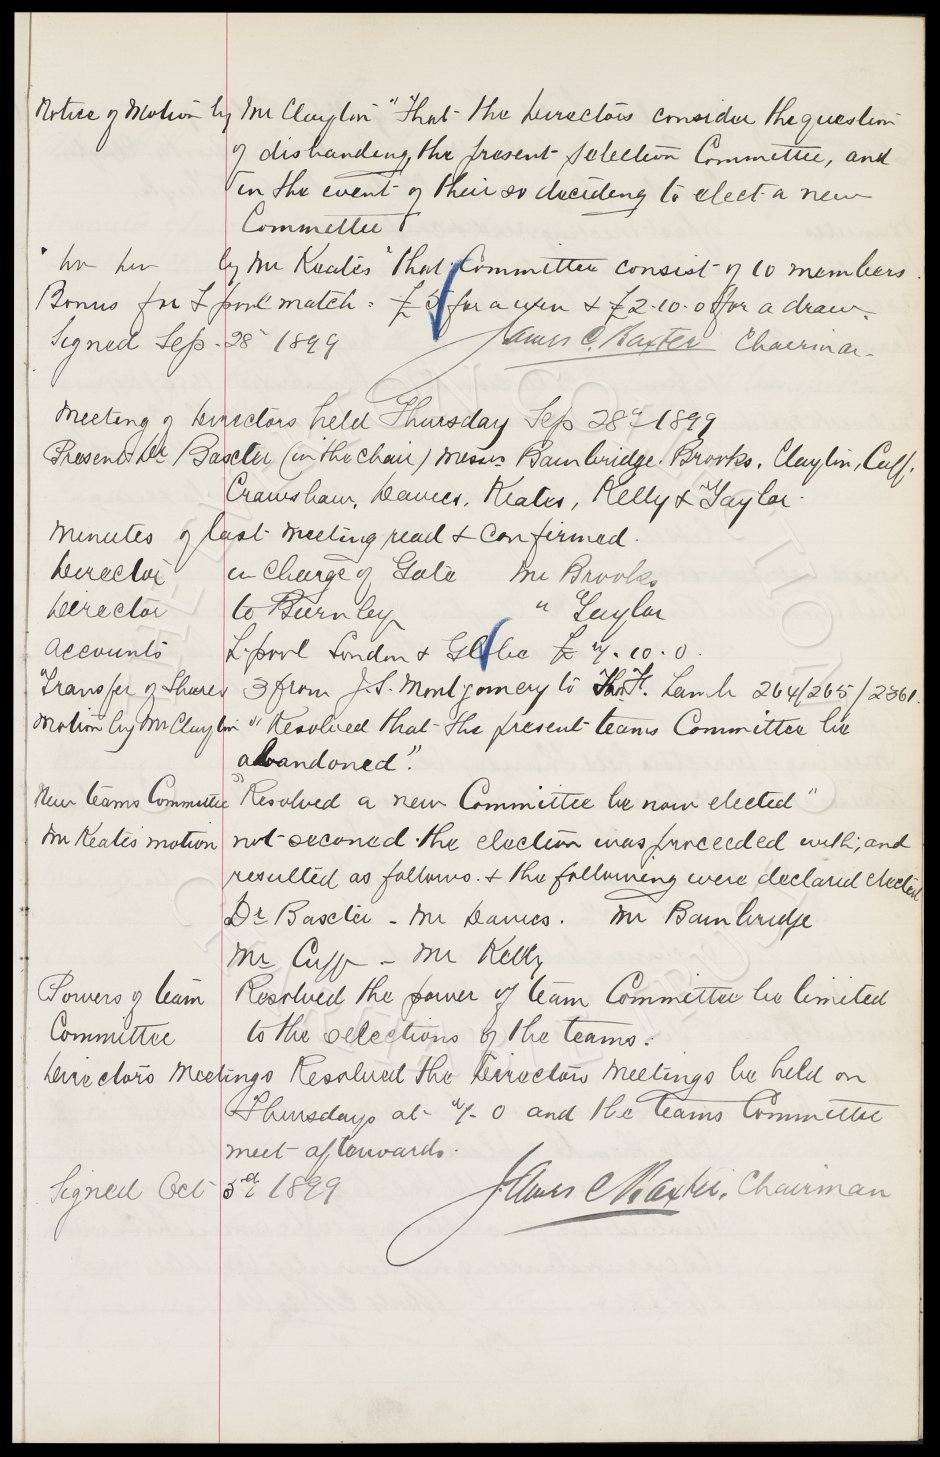 Notice of Motion by Mr Clayton "That the Directors consider the question
of disbanding the present Selection Committee, and
in the event of their so deciding to elect a new
Committee
" Do Do by Mr Keates "That Committee consist of 10 members.
Bonus for L'pool match. £5 for a win & £2.10.0 for a draw.
Signed Sep. 28 1899 James C. Baxter Chairman
Meeting of Directors held Thursday Sep 28th 1899
Present Dr Baxter (in the chair) Messrs Bainbridge. Brooks. Clayton, Cuff,
Crawshaw, Davies, Keates, Kelly & Taylor.
Minutes of last meeting read & confirmed.
Director in charge of Gate Mr Brooks
Director to Burnley " Taylor
Accounts L'pool London & Globe £7.10.0.
Transfer of Shares 3 from J.S. Montgomery to Thos H. Lamb 264/265/2361.
Motion by Mr Clayton "Resolved that the present teams Committee be
abandoned".
New teams Committee "Resolved a new Committee be now elected"
Mr Keates motion not seconed the election was proceeded with; and
resulted as follows. & the following were declared elected
Dr Baxter - Mr Davies. Mr Bainbridge
Mr Cuff - Mr Kelly
Powers of team Resolved the power of team Committee be limited
Committee to the selections of the teams.
Directors Meetings Resolved the Directors Meetings be held on
Thursdays at 7-0 and the Teams Committee
meet afterwards.
Signed Oct 5th 1899 James C Baxter. Chairman